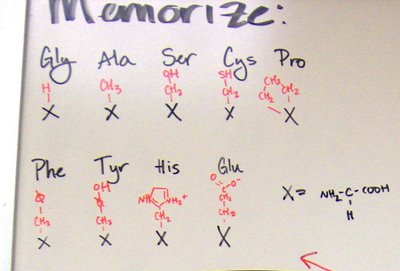 Memorize:
Gly Ala Ser Cys Pro
H CH3 OH CH2 SH CH2 CH2 CH2 CH2
X X X X X
Phe Tyr His Glu
Φ CH2 OH Φ CH2 NH NH2+ CH2 O O- C CH2 CH2
X X X X
X = NH2-C-COOH
H H